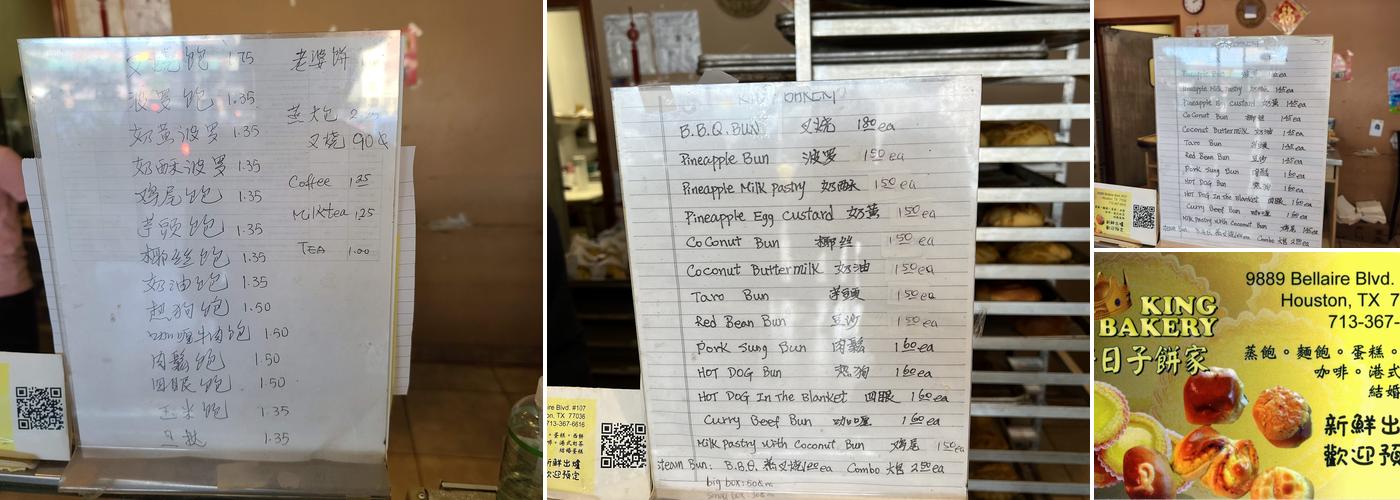 叉燒飽 1.75
波罗飽 1.35
奶黄波罗 1.35
奶酥波罗 1.35
鸡尾飽 1.35
芋頭飽 1.35
椰丝飽 1.35
奶油飽 1.35
热狗飽 1.50
咖喱牛肉飽 1.50
肉鬆飽 1.50
四眼飽 1.50
玉米飽 1.35
1.35
老婆餅
蒸大包
叉燒 90¢
Coffee 1.25
Milktea 1.25
TEA 1.00
BAKERY
B.B.Q. BUN 叉烧 180 ea
Pineapple Bun 波罗 150 ea
Pineapple Milk pastry 奶酥 150 ea
Pineapple Egg Custard 奶黄 150 ea
CoConut Bun 椰丝 150 ea
Coconut Buttermilk 奶油 150 ea
Taro Bun 芋頭 150 ea
Red Bean Bun 豆沙 150 ea
Pork Sung Bun 肉鬆 160 ea
HOT DOG Bun 热狗 160 ea
HOT DOG In the Blanket 四眼 160 ea
Curry Beef Bun 咖喱 160 ea
Milk Pastry with Coconut Bun 鸡尾 150 ea
Steam Bun: B.B.Q. ea Combo 大包 ea
big box: 50¢
Blvd. #107
TX 77036
713-367-6616
新鮮出爐
歡迎預定
Pineapple Bun
Pineapple Milk pastry 奶酥
Pineapple Egg Custard 奶黄
CoConut Bun 椰丝
Coconut Buttermilk 奶油
Taro Bun 芋頭
Red Bean Bun 豆沙
Pork Sung Bun 肉鬆
HOT DOG Bun 热狗
HOT DOG In the Blanket 四眼
Curry Beef Bun 咖喱
Milk Pastry with Coconut Bun 鸡尾
KING
BAKERY
日子餅家
9889 Bellaire Blvd.
Houston, TX 7
713-367-
蒸飽。麵飽。蛋糕。
咖啡。港式
結婚
新鮮出
歡迎預